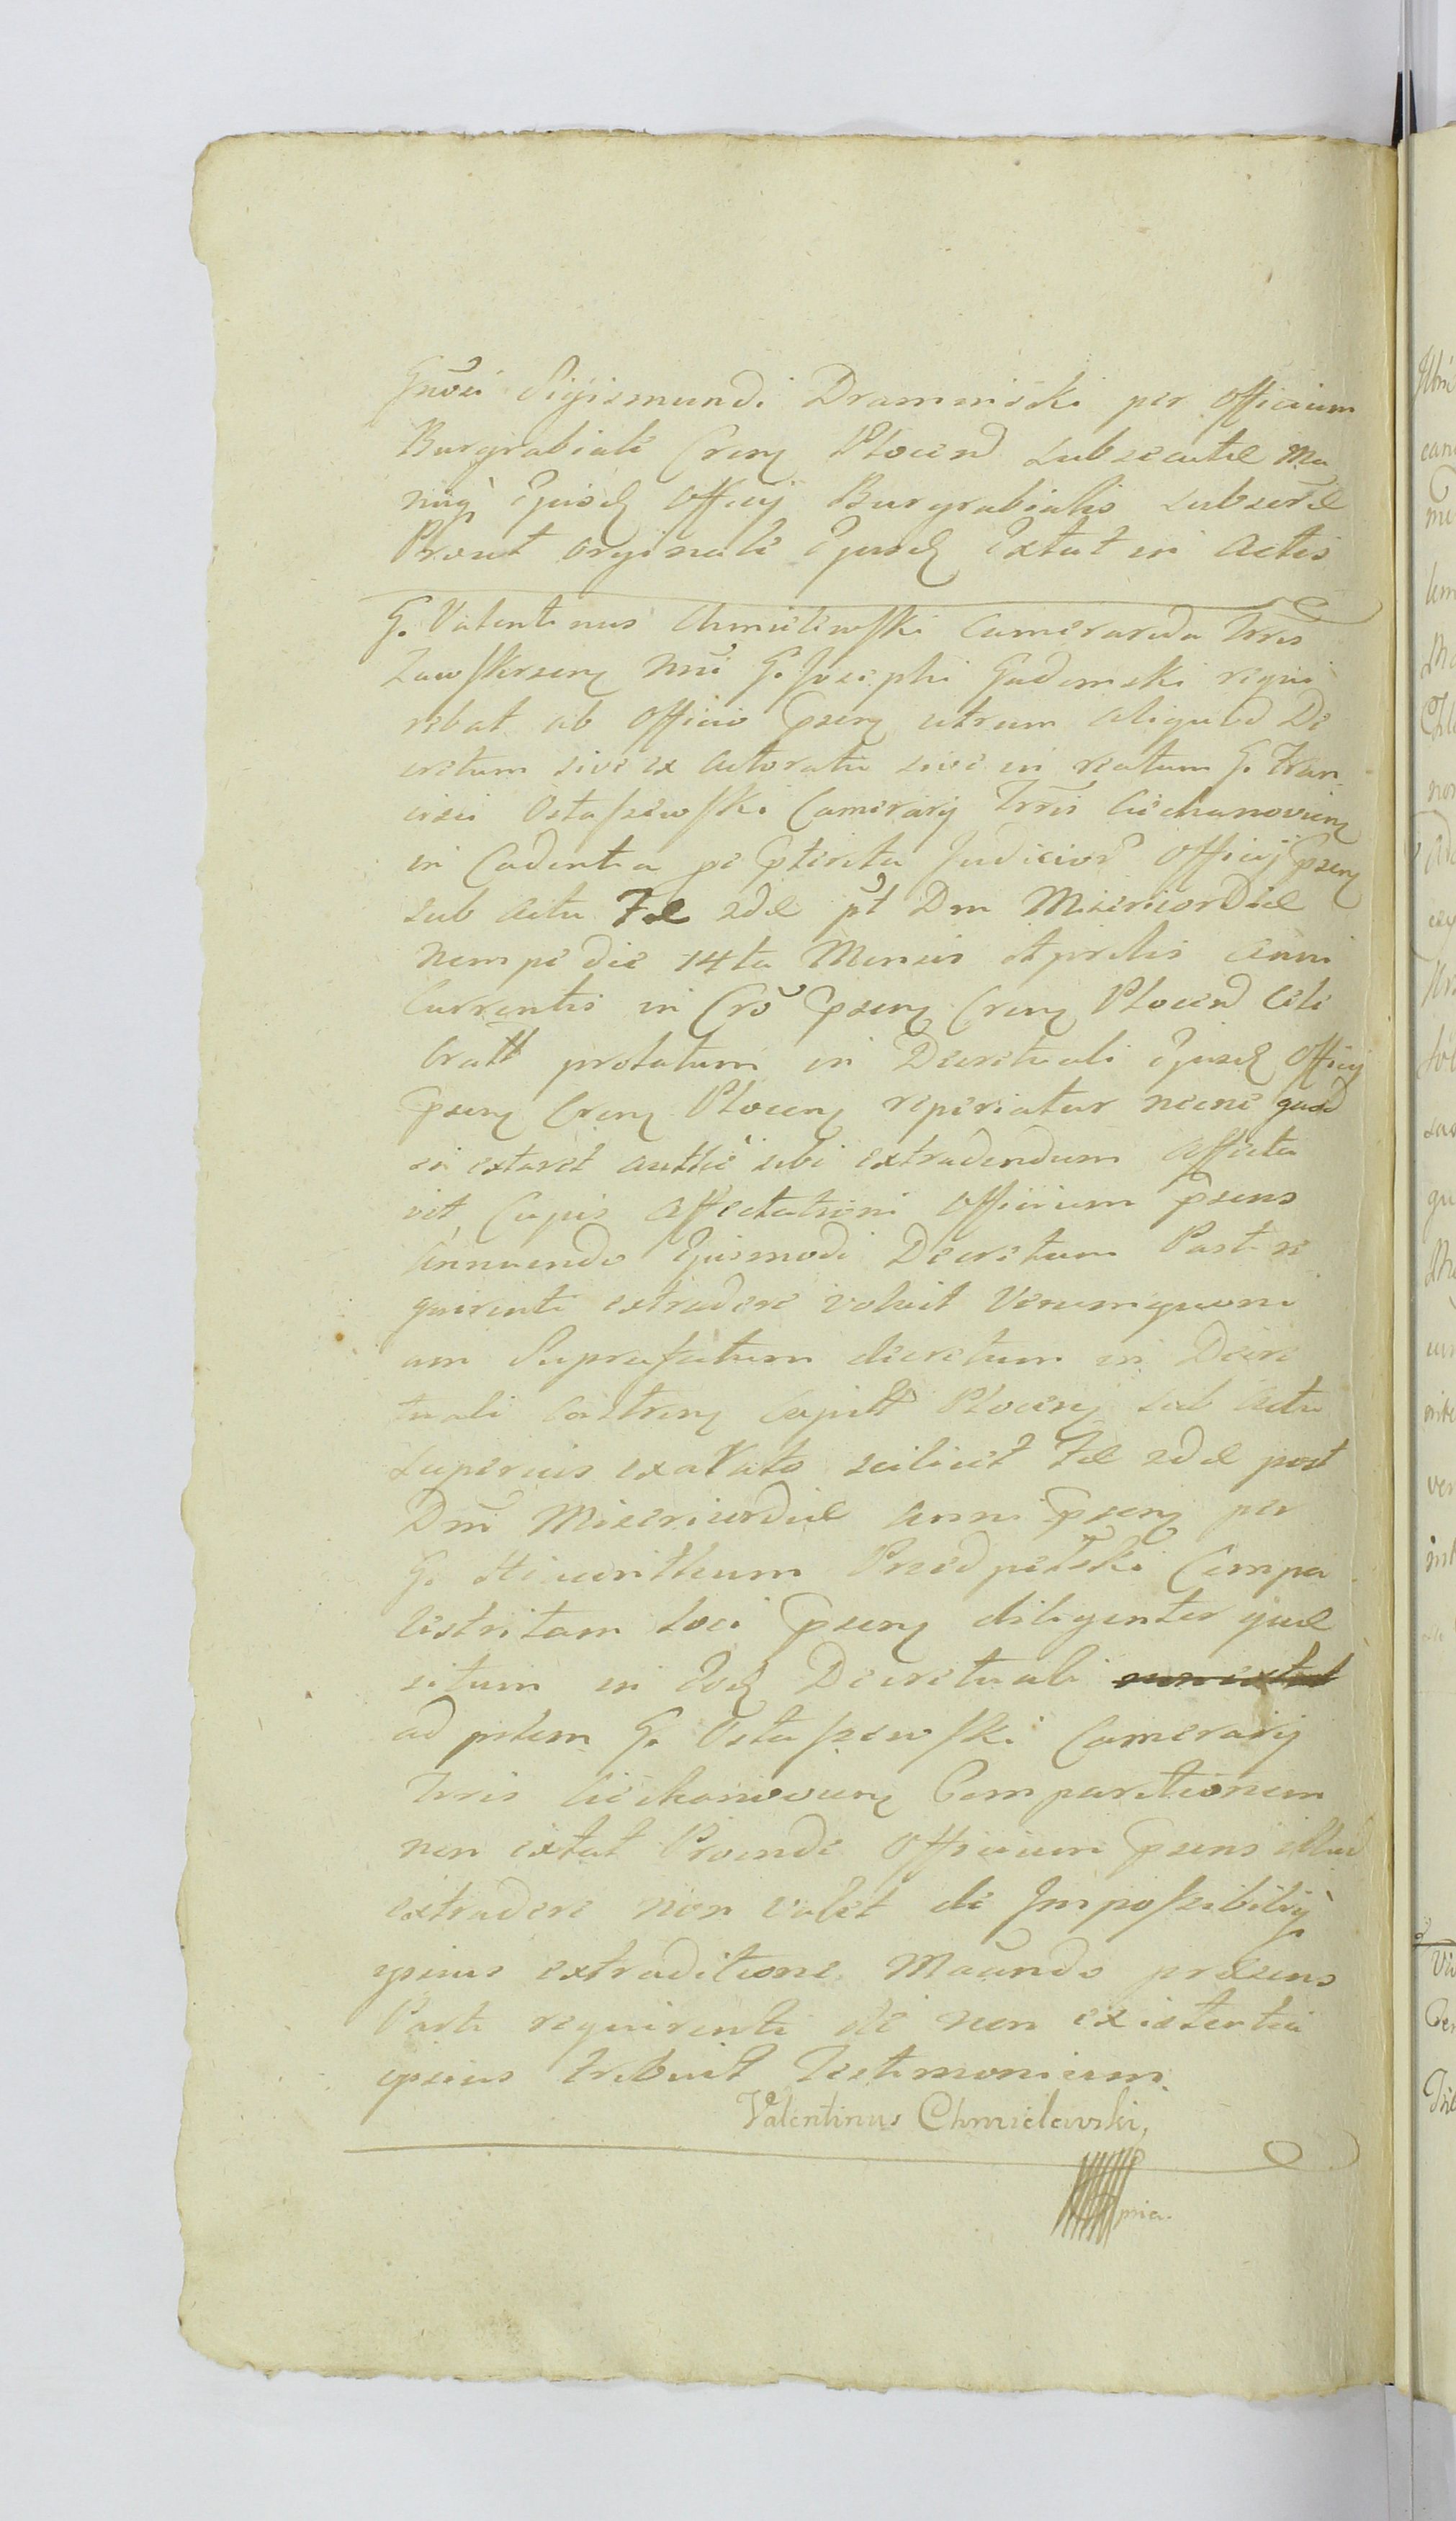 Gnosi Sigismundi Draminski per Officium
Burgrabiale Cren Plocen subsecutæ ma
nuq̀ Ejusd Officij Burgrabialis subscræ
Prout orginale Ejusd Extat in Actis
G. Valentinus Chmielewski Camerarida Trris
Zawskrzen nnie G. Josephi Gadomski requi
rebat ab Officio Psen utrum aliquod De
cretum sive ex actoratu sive in reatum G. Fran
cisci Ostaszewski Camerarij Trris Ciechanovien
in Cadentia pe Pterita Judicior Officij Psen
sub Actu Fæ 2dæ pt Dm Misericordiæ
nempe die 14ta Mensis Aprilis Anni
Currentis in Cro Psen Cren Plocen Cele
bratt prolatum in Decretuali Ejusd Officij
Psen Cren Plocen reperiatur necne quod
si extaret authe sibi extradendum Affecta
vit, Cujus Affectationi Officium Psens
annuendo Ejusmodi Decretum Parti re
quirenti extradere voluit Verumquoni
am Suprafatum decretum in Decre
tuali Castren Capitt Plocen sub Actu
superius exarato scilicet Fæ 2dæ post
Dm Misericordiæ anni Psen per
G. Hiacinthum Przedpełski Campa
listritam loci Psen diligenter quæ
situm in Eod Decretuali non extat
ad pnlem G. Ostaszewski Camerarij
Trris Ciechanovien Comparitionem
non extat Proinde Officium Psens illud
extradere non valet de Impossibiliq̀
ipsius extraditione Maando præsens
Parti requirenti de non existentia
ipsius tribuit Testimonium.
Valentinus Chmielewski,
mia.